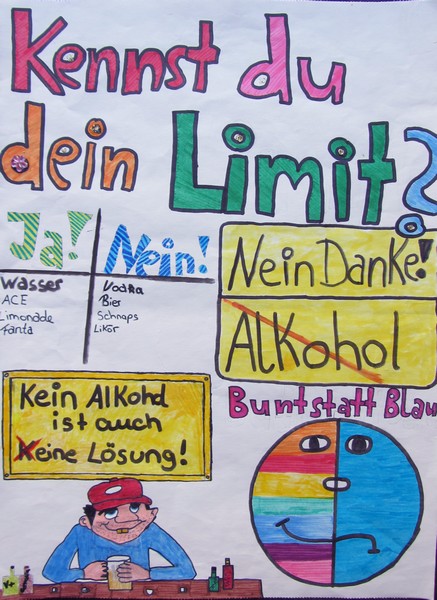 Kennst du
dein Limit?
Ja!
Wasser
ACE
Limonade
Fanta
Nein!
Vodka
Bier
Schnaps
Likör
Nein Danke!
Alkohol
Bunt statt Blau
Kein Alkohol
ist auch
Keine Lösung!